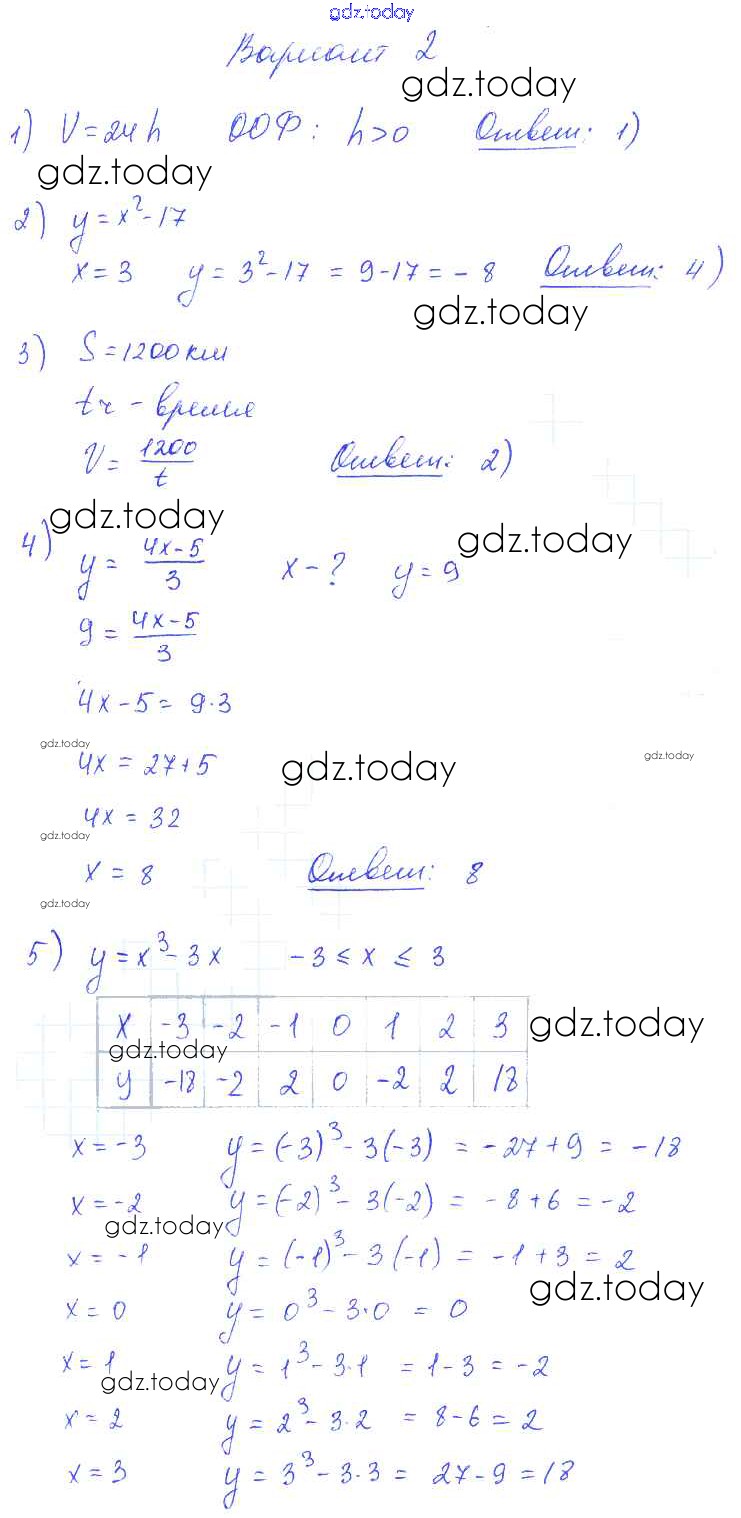 gdz.today
Вариант 2
gdz.today
1) V = 24h ООФ: h>0 Ответ: 1)
gdz.today
2) y = x² - 17
x = 3 y = 3² - 17 = 9 - 17 = - 8 Ответ: 4)
gdz.today
3) S = 1200 км
tч - время
V = 1200/t Ответ: 2)
gdz.today
4) y = (4x-5)/3 x - ? y = 9
gdz.today
9 = (4x-5)/3
4x - 5 = 9·3
gdz.today
4x = 27+5
gdz.today
gdz.today
4x = 32
gdz.today
x = 8 Ответ: 8
gdz.today
5) y = x³ - 3x -3 ≤ x ≤ 3
x -3 -2 -1 0 1 2 3
gdz.today
gdz.today
y -18 -2 2 0 -2 2 18
x = -3 y = (-3)³ - 3(-3) = -27 + 9 = -18
x = -2 y = (-2)³ - 3(-2) = -8 + 6 = -2
gdz.today
x = -1 y = (-1)³ - 3(-1) = -1 + 3 = 2
gdz.today
x = 0 y = 0³ - 3·0 = 0
x = 1 y = 1³ - 3·1 = 1 - 3 = -2
gdz.today
x = 2 y = 2³ - 3·2 = 8 - 6 = 2
x = 3 y = 3³ - 3·3 = 27 - 9 = 18